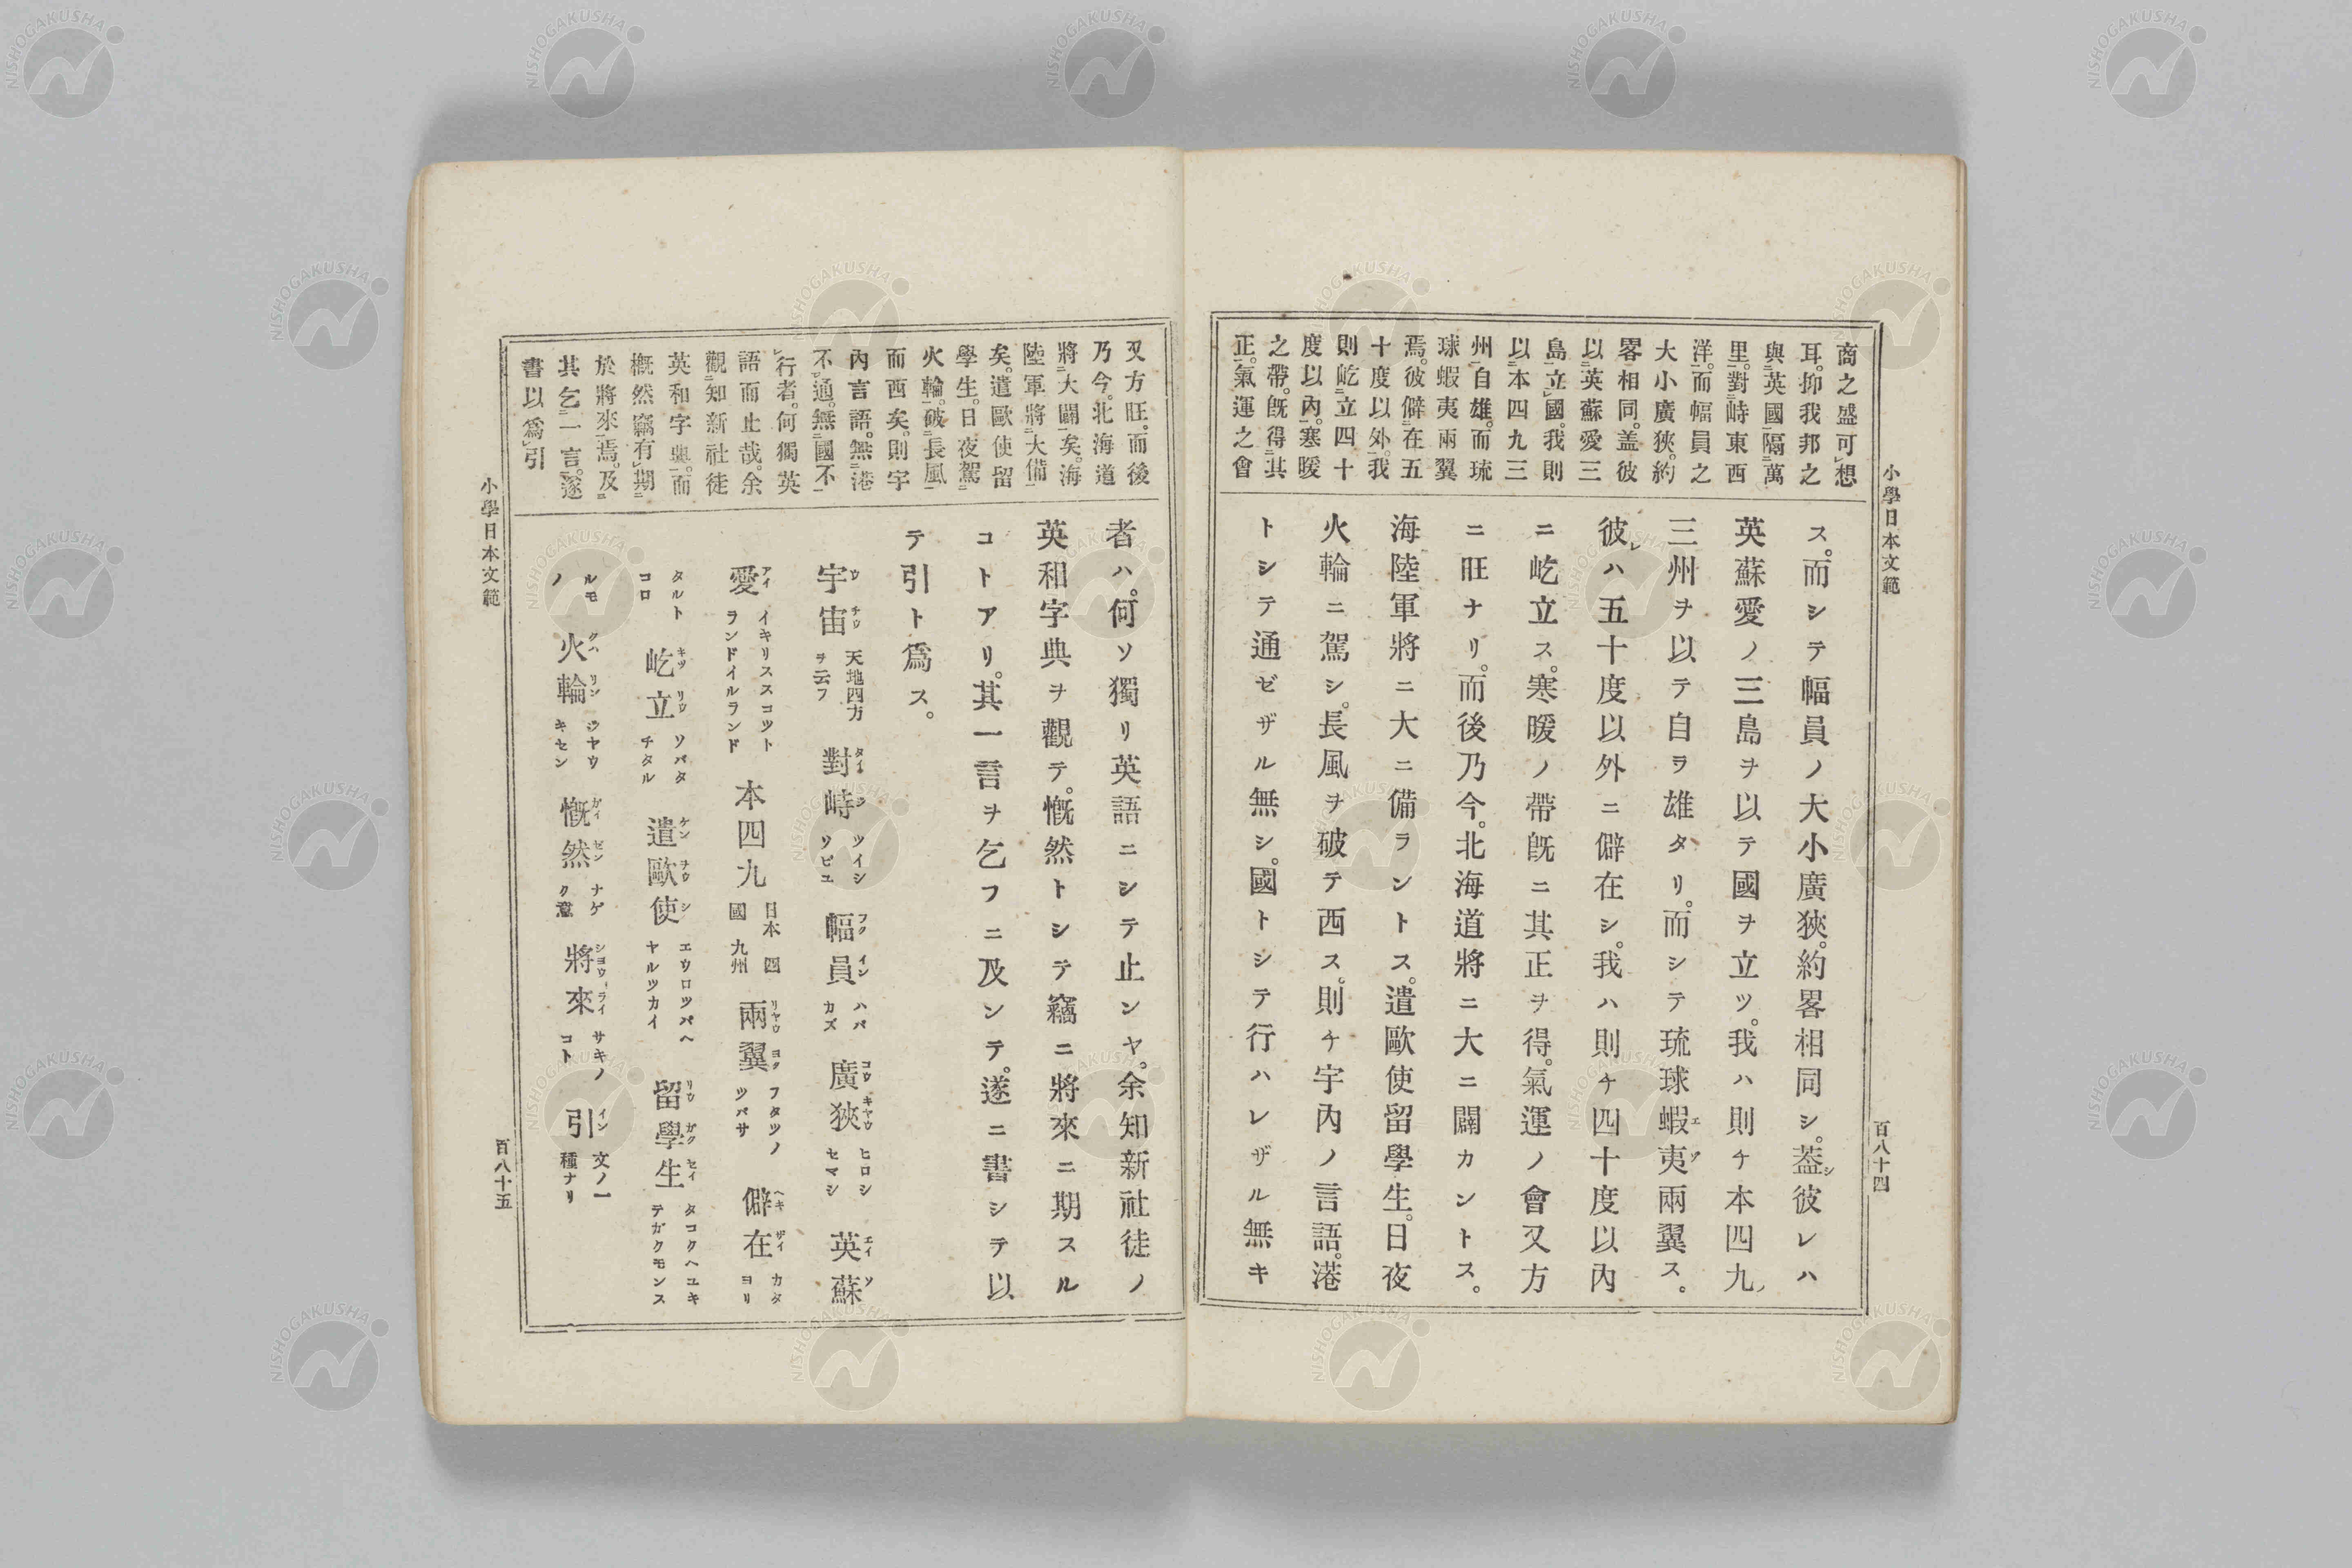 小學日本文範
百八十四
商之盛可想
耳。抑我邦之
與英國隔萬
里。對峙東西
洋。而幅員之
大小廣狹。約
畧相同。盖彼
以英蘇愛三
島立國。我則
以本四九三
州自雄。而琉
球蝦夷兩翼
焉。彼僻在五
十度以外。我
則屹立四十
度以內。寒暖
之帶。旣得其
正。氣運之會
ス。而シテ幅員ノ大小廣狹。約畧相同シ。葢シ彼レハ
英蘇愛ノ三島ヲ以テ國ヲ立ツ。我ハ則チ本四九ノ
三州ヲ以テ自ヲ雄タリ。而シテ琉球蝦夷エゾ兩翼ス。
彼レハ五十度以外ニ僻在シ。我ハ則チ四十度以內
ニ屹立ス。寒暖ノ帶旣ニ其正ヲ得。氣運ノ會又方
ニ旺ナリ。而後乃今。北海道將ニ大ニ闢カントス。
海陸軍將ニ大ニ備ラントス。遣歐使留學生。日夜
火輪ニ駕シ。長風ヲ破テ西ス。則チ宇內ノ言語。港
トシテ通ゼザル無シ。國トシテ行ハレザル無キ
又方旺。而後
乃今。北海道
將大闢矣。海
陸軍將大備
矣。遣歐使留
學生。日夜駕
火輪。破長風
而西矣。則宇
內言語。無港
不通。無國不
行者。何獨英
語而止哉。余
觀知新社徒
英和字典。而
慨然竊有期
於將來焉。及
其乞一言。遂
書以爲引
者ハ。何ソ獨リ英語ニシテ止ンヤ。余知新社徒ノ
英和字典ヲ觀テ。慨然トシテ竊ニ將來ニ期スル
コトアリ。其一言ヲ乞フニ及ンテ。遂ニ書シテ以
テ引ト爲ス。
宇宙ウチウ 天地四方ヲ云フ 對峙タイジ ツイシソビユ 幅員フクイン ハバカズ 廣狹コウキヤウ ヒロシセマシ 英蘇エイソ
愛アイ イキリススコツトランドイルランド 本四九 日本 四國 九州 兩翼リヤウヨク フタツノツバサ 僻在ヘキザイ カタヨリ
タルトコロ 屹立キツリウ ソバタチタル 遣歐使ケンヲウシ エウロツパヘヤルツカイ 留學生リウガクセイ タコクヘユキテガクモンス
ルモノ 火輪クハリン ジヤウキセン 慨然ガイゼン ナゲク意 將來シヨウライ サキノコト 引イン 文ノ一種ナリ
小學日本文範
百八十五
NISHOGAKUSHA